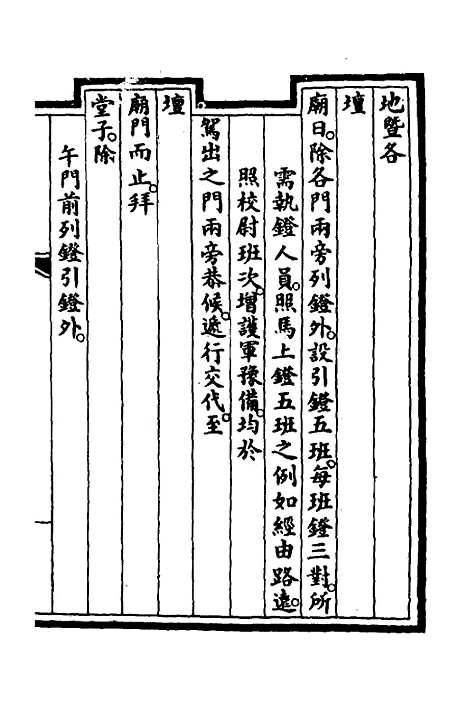 地暨各
壇
廟日。除各門兩旁列鐙外。設引鐙五班。每班鐙三對。所
需執鐙人員。照馬上鐙五班之例如經由路遠。
照校尉班次。增護軍豫備。均於
駕出之門兩旁恭候。遞行交代。至
壇
廟門而止。拜
堂子。除
午門前列鐙引鐙外。